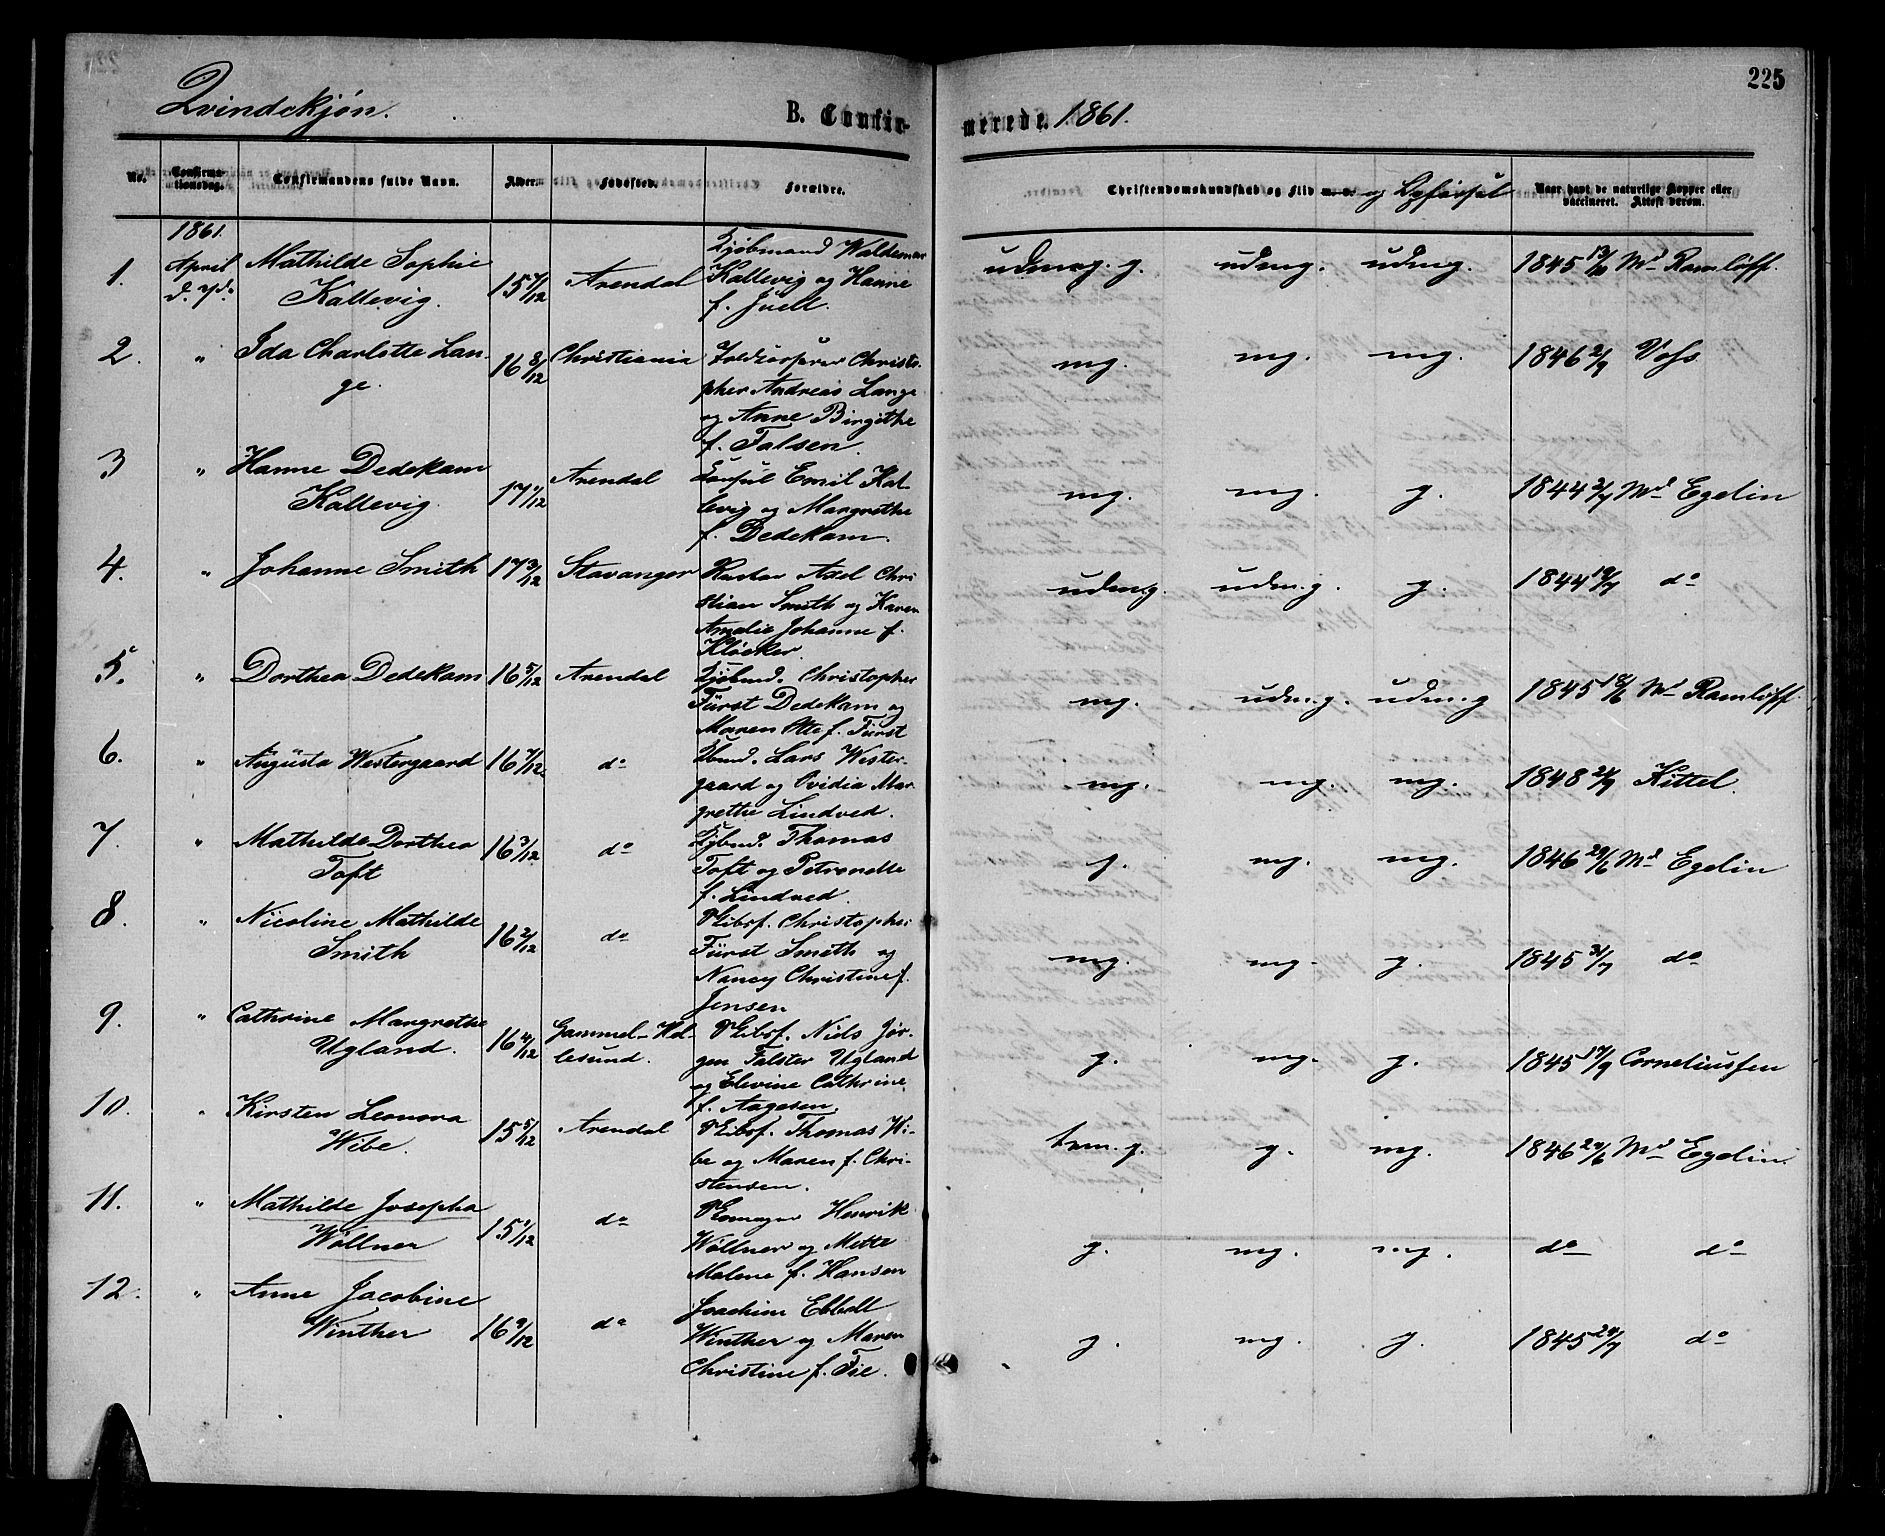 225
Qvindekjøn.
B. Confirmerede. 1861.
No.
Confirmationsdag.
Confirmandens fulde Navn.
Alder.
Fødested.
Forældre.
Christendomskundskab og Flid og Opførsel
Naar havt de naturlige Kopper eller vaccineret. Attest derom.
1861.
1. April Mathilde Sophie Kallevig. 15 7/12 Arendal Kjøbmand Waldemar Kallevig og Hanne f. Juell. udmrg. g. udmg. udmg. 1845 Md Ramløff.
2. " Ida Charlotte Lange. 16 8/12 Christiania Christopher Andreas Lange og Anne Birgithe f. Falsen. mg. mg. mg. 1846 2/9 Vofs
3 " Hanne Dedekam Kallevig. 17 1/12 Arendal Consul Emil Kallevig og Margrethe f. Dedekam. mg. mg. g. 1844 2/7 Md Egelin
4. " Johanne Smith 17 3/12 Stavanger Axel Christian Smith og Karen Amalie Johanne f. Kløcker. udm.g. udm.g. g. 1844 19/7 do
5. " Dorthea Dedekam 16 5/12 Arendal Kjøbmd. Christopher Fürst Dedekam og Maren f. Fürst mg. udm.g. udm.g 1845 18/6 Md Ramløff.
6. " Augusta Westergaard 16 7/12. do Kbmd. Lars Westergaard og Ovidia Margrethe Lindved. mg. mg. mg. 1848 24/9 Kittel.
7. " Mathilde Dorthea Toft 16 3/12 do Kjbmd. Thomas Toft og Petronelle f. Lindved. g. mg. mg. 1846 29/6 Md Egelin
8. " Nicoline Mathilde Smith 16 2/12 do Skibsf. Christopher Fürst Smith og Nancy Christine f. Jensen mg. mg. g. 1845 3/7 do
9. " Cathrine Margrethe Ugland. 16 4/12 Gammel-Hellesund. Skibsf. Niels Jørgen Falster Ugland og Elevine Cathrine f. Aagesen. g. mg. g. 1845 17/9 Corneliussen
10. " Kirsten Leonora Wibe. 15 5/12 Arendal Skibsf. Thomas Wibe og Maren f. Christensen. tem.g. g. mg. 1846 29/6 Md Egelin.
11. " Mathilde Josepha Wöllner 15 1/12 do Henrik Wöllner og Mette Malene f. Hansen g. mg. mg. do do
12. " Anne Jacobine Winther 16 9/12 do Joachim Ebbell Winther og Maren Christine f. Fie. g. mg. g. 1845 24/7 do